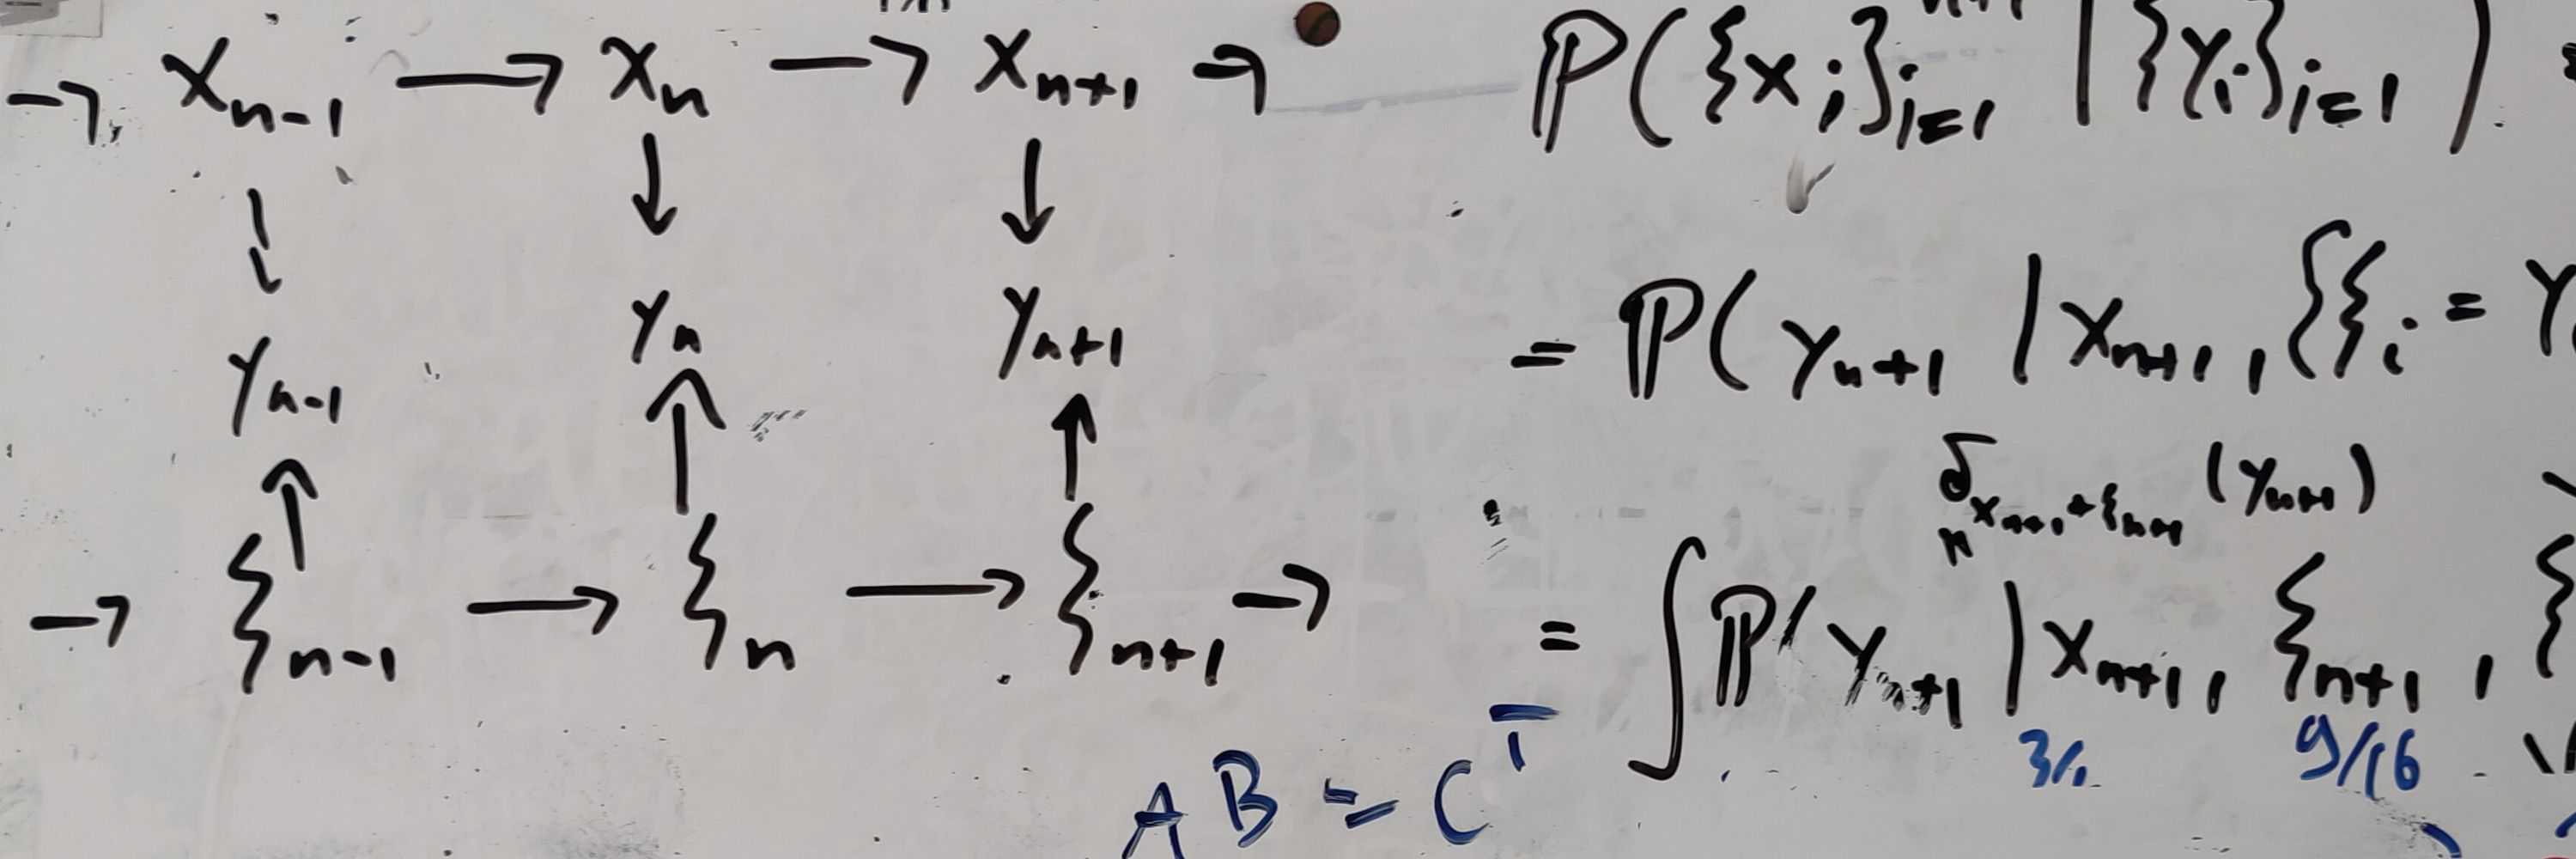 → x_{n-1} → x_n → x_{n+1} →
↓ ↓ ↓
y_{n-1} y_n y_{n+1}
↑ ↑ ↑
→ ξ_{n-1} → ξ_n → ξ_{n+1} →
ℙ({x_i}_{i=1} | {y_i}_{i=1})
= ℙ(y_{n+1} | x_{n+1}, {ξ_i = y
δ_{x_{n+1}+ξ_{n+1}} (y_{n+1})
= ∫ ℙ(y_{n+1} | x_{n+1}, ξ_{n+1}, ξ
9/16
AB = C^T